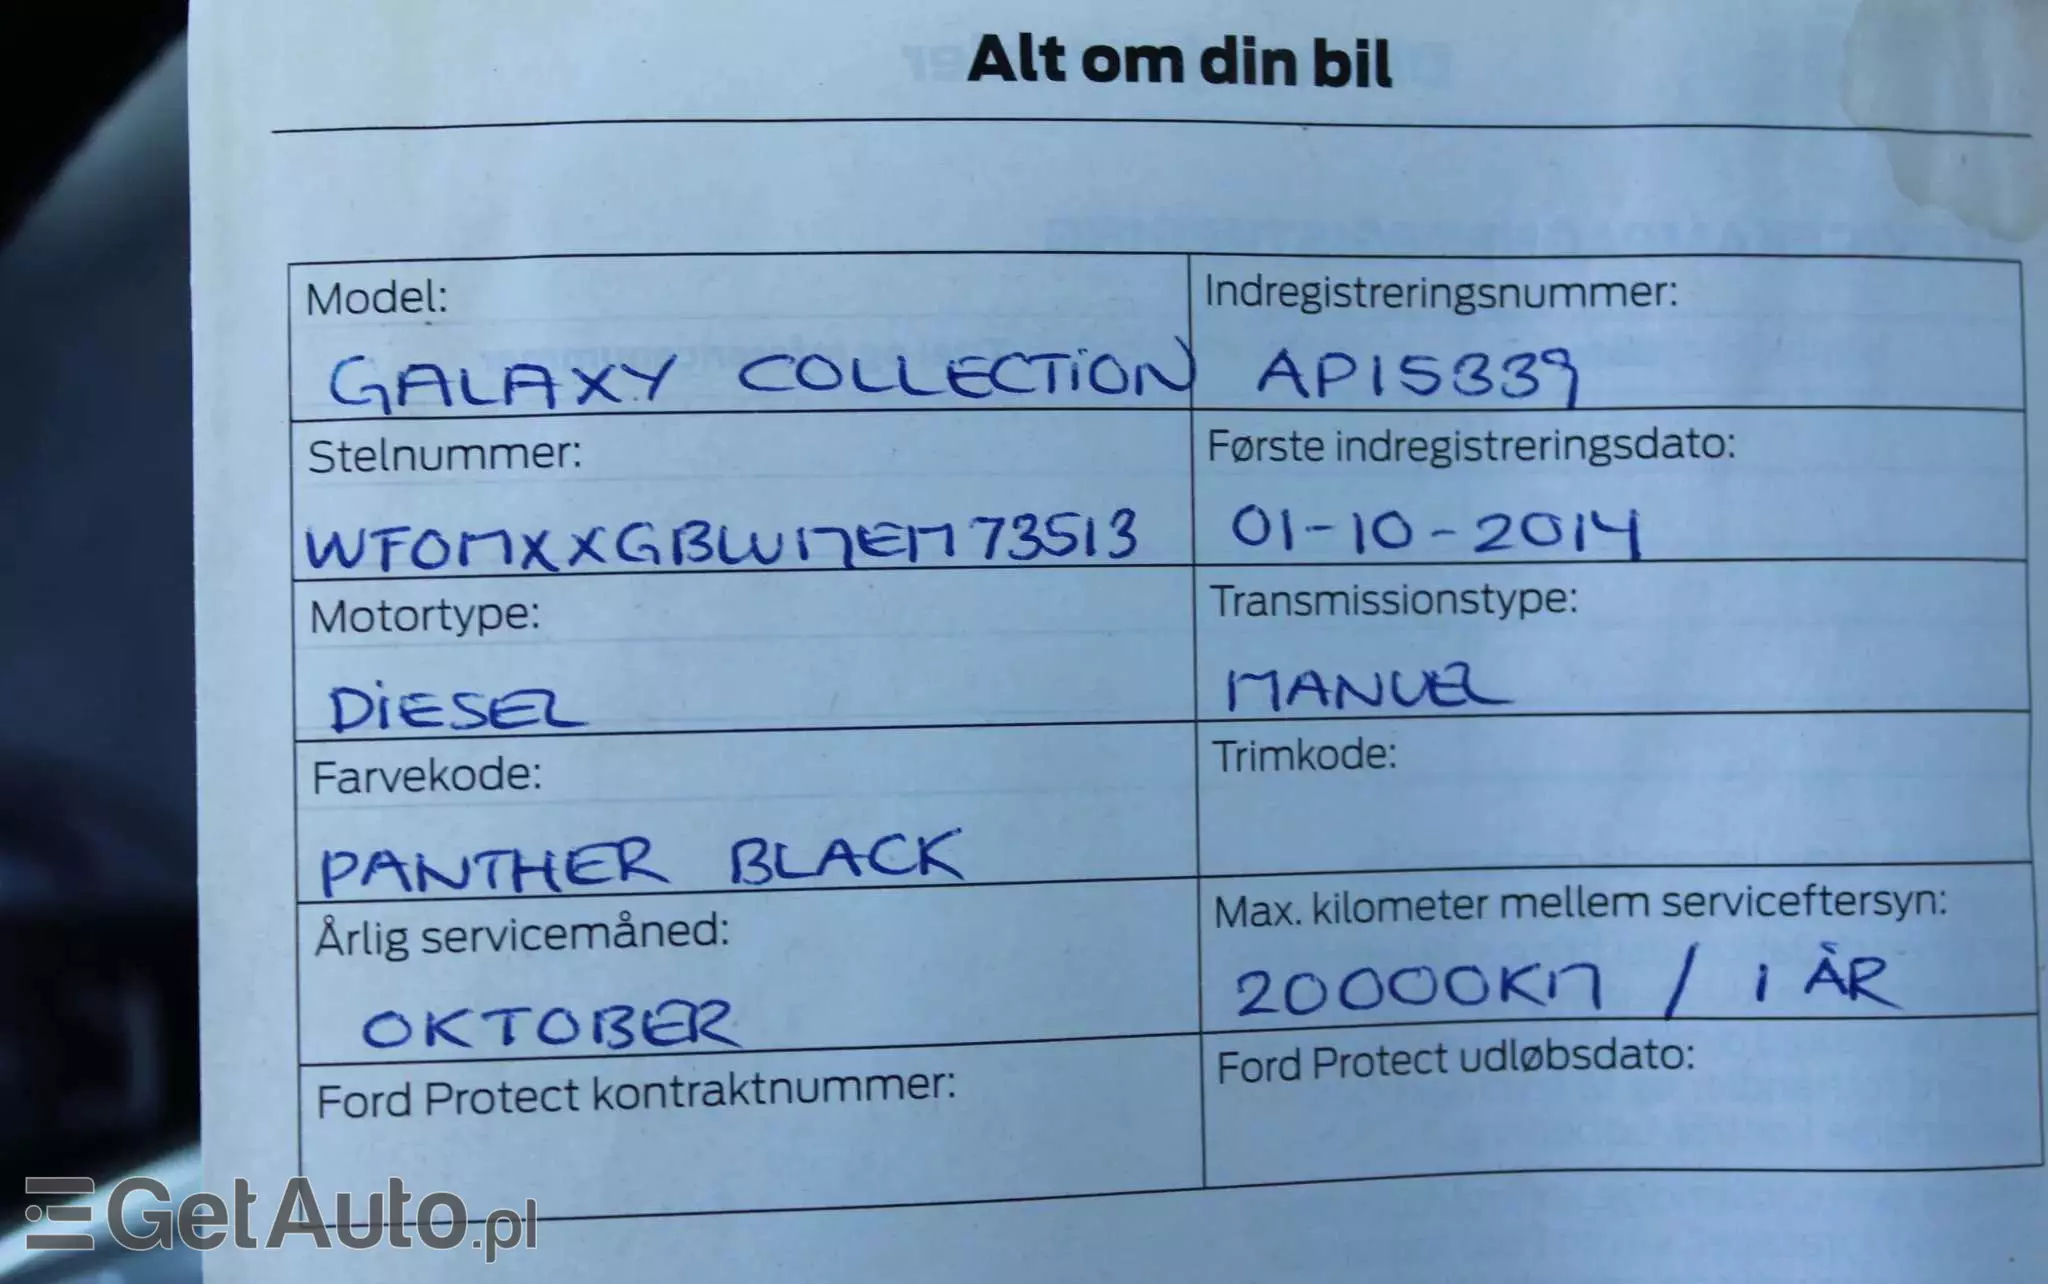 Alt om din bil
Model:
GALAXY COLLECTION
Indregistreringsnummer:
AP15339
Stelnummer:
WF0MXXGBWMEM73513
Første indregistreringsdato:
01-10-2014
Motortype:
DiESEL
Transmissionstype:
MANUEL
Farvekode:
PANTHER BLACK
Trimkode:
Årlig servicemåned:
OKTOBER
Max. kilometer mellem serviceftersyn:
20000KM / 1 ÅR
Ford Protect kontraktnummer:
Ford Protect udløbsdato:
GetAuto.pl